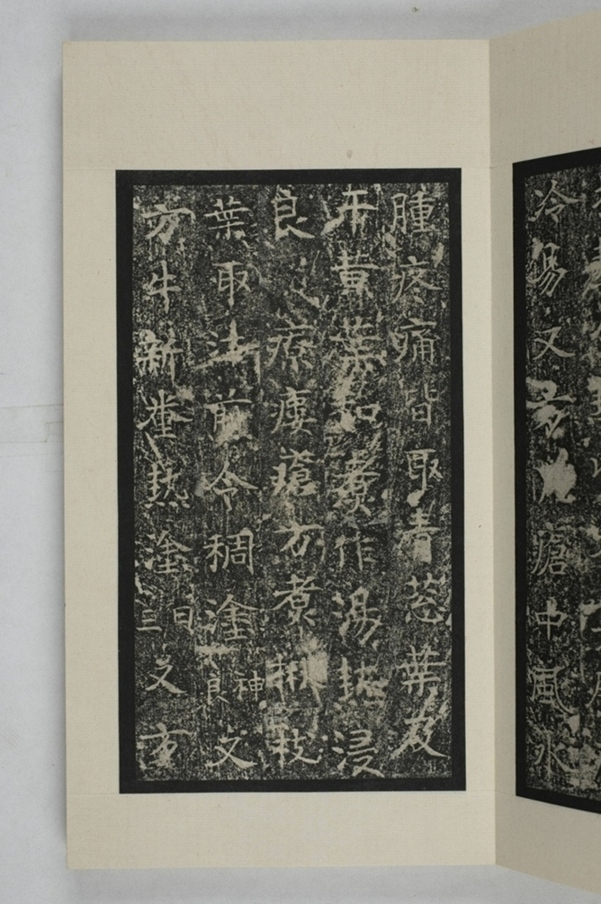 冷又瘡中風水
腫疼痛皆取青葱葉及
干黃葉和煮作湯熱浸
良療瘻瘡方煮楸枝
葉取汁煎令稠塗神良又
方牛新糞熱塗日三又